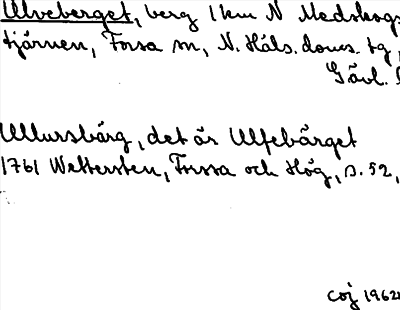 Ulveberget, berg 1 km N Medskogs
tjärnen, Forsa sn, N. Häls. doms. tg,
Gävl. l
Ullursbärg, det är Ulfebärget
1761 Wettersten, Forssa och Hög, s. 52,
coj 1962